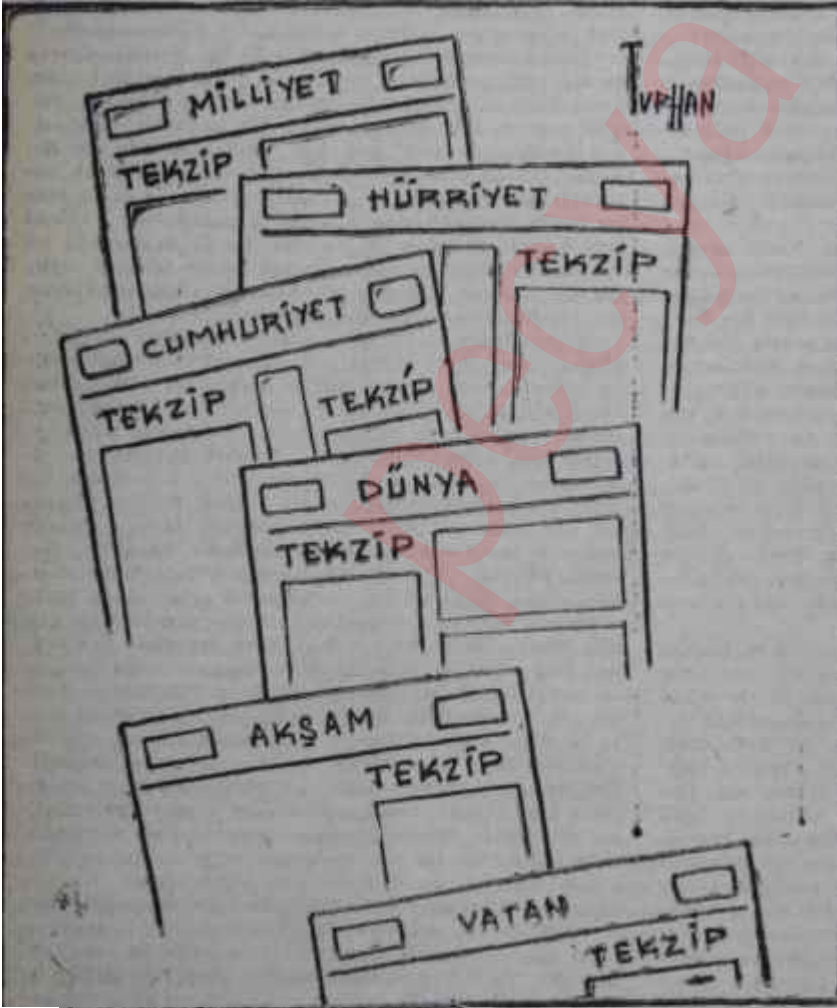 MİLLİYET
TURHAN
TEKZİP
HÜRRİYET
TEKZİP
CUMHURİYET
TEKZİP
TEKZİP
DÜNYA
TEKZİP
AKŞAM
TEKZİP
VATAN
TEKZİP
pecya